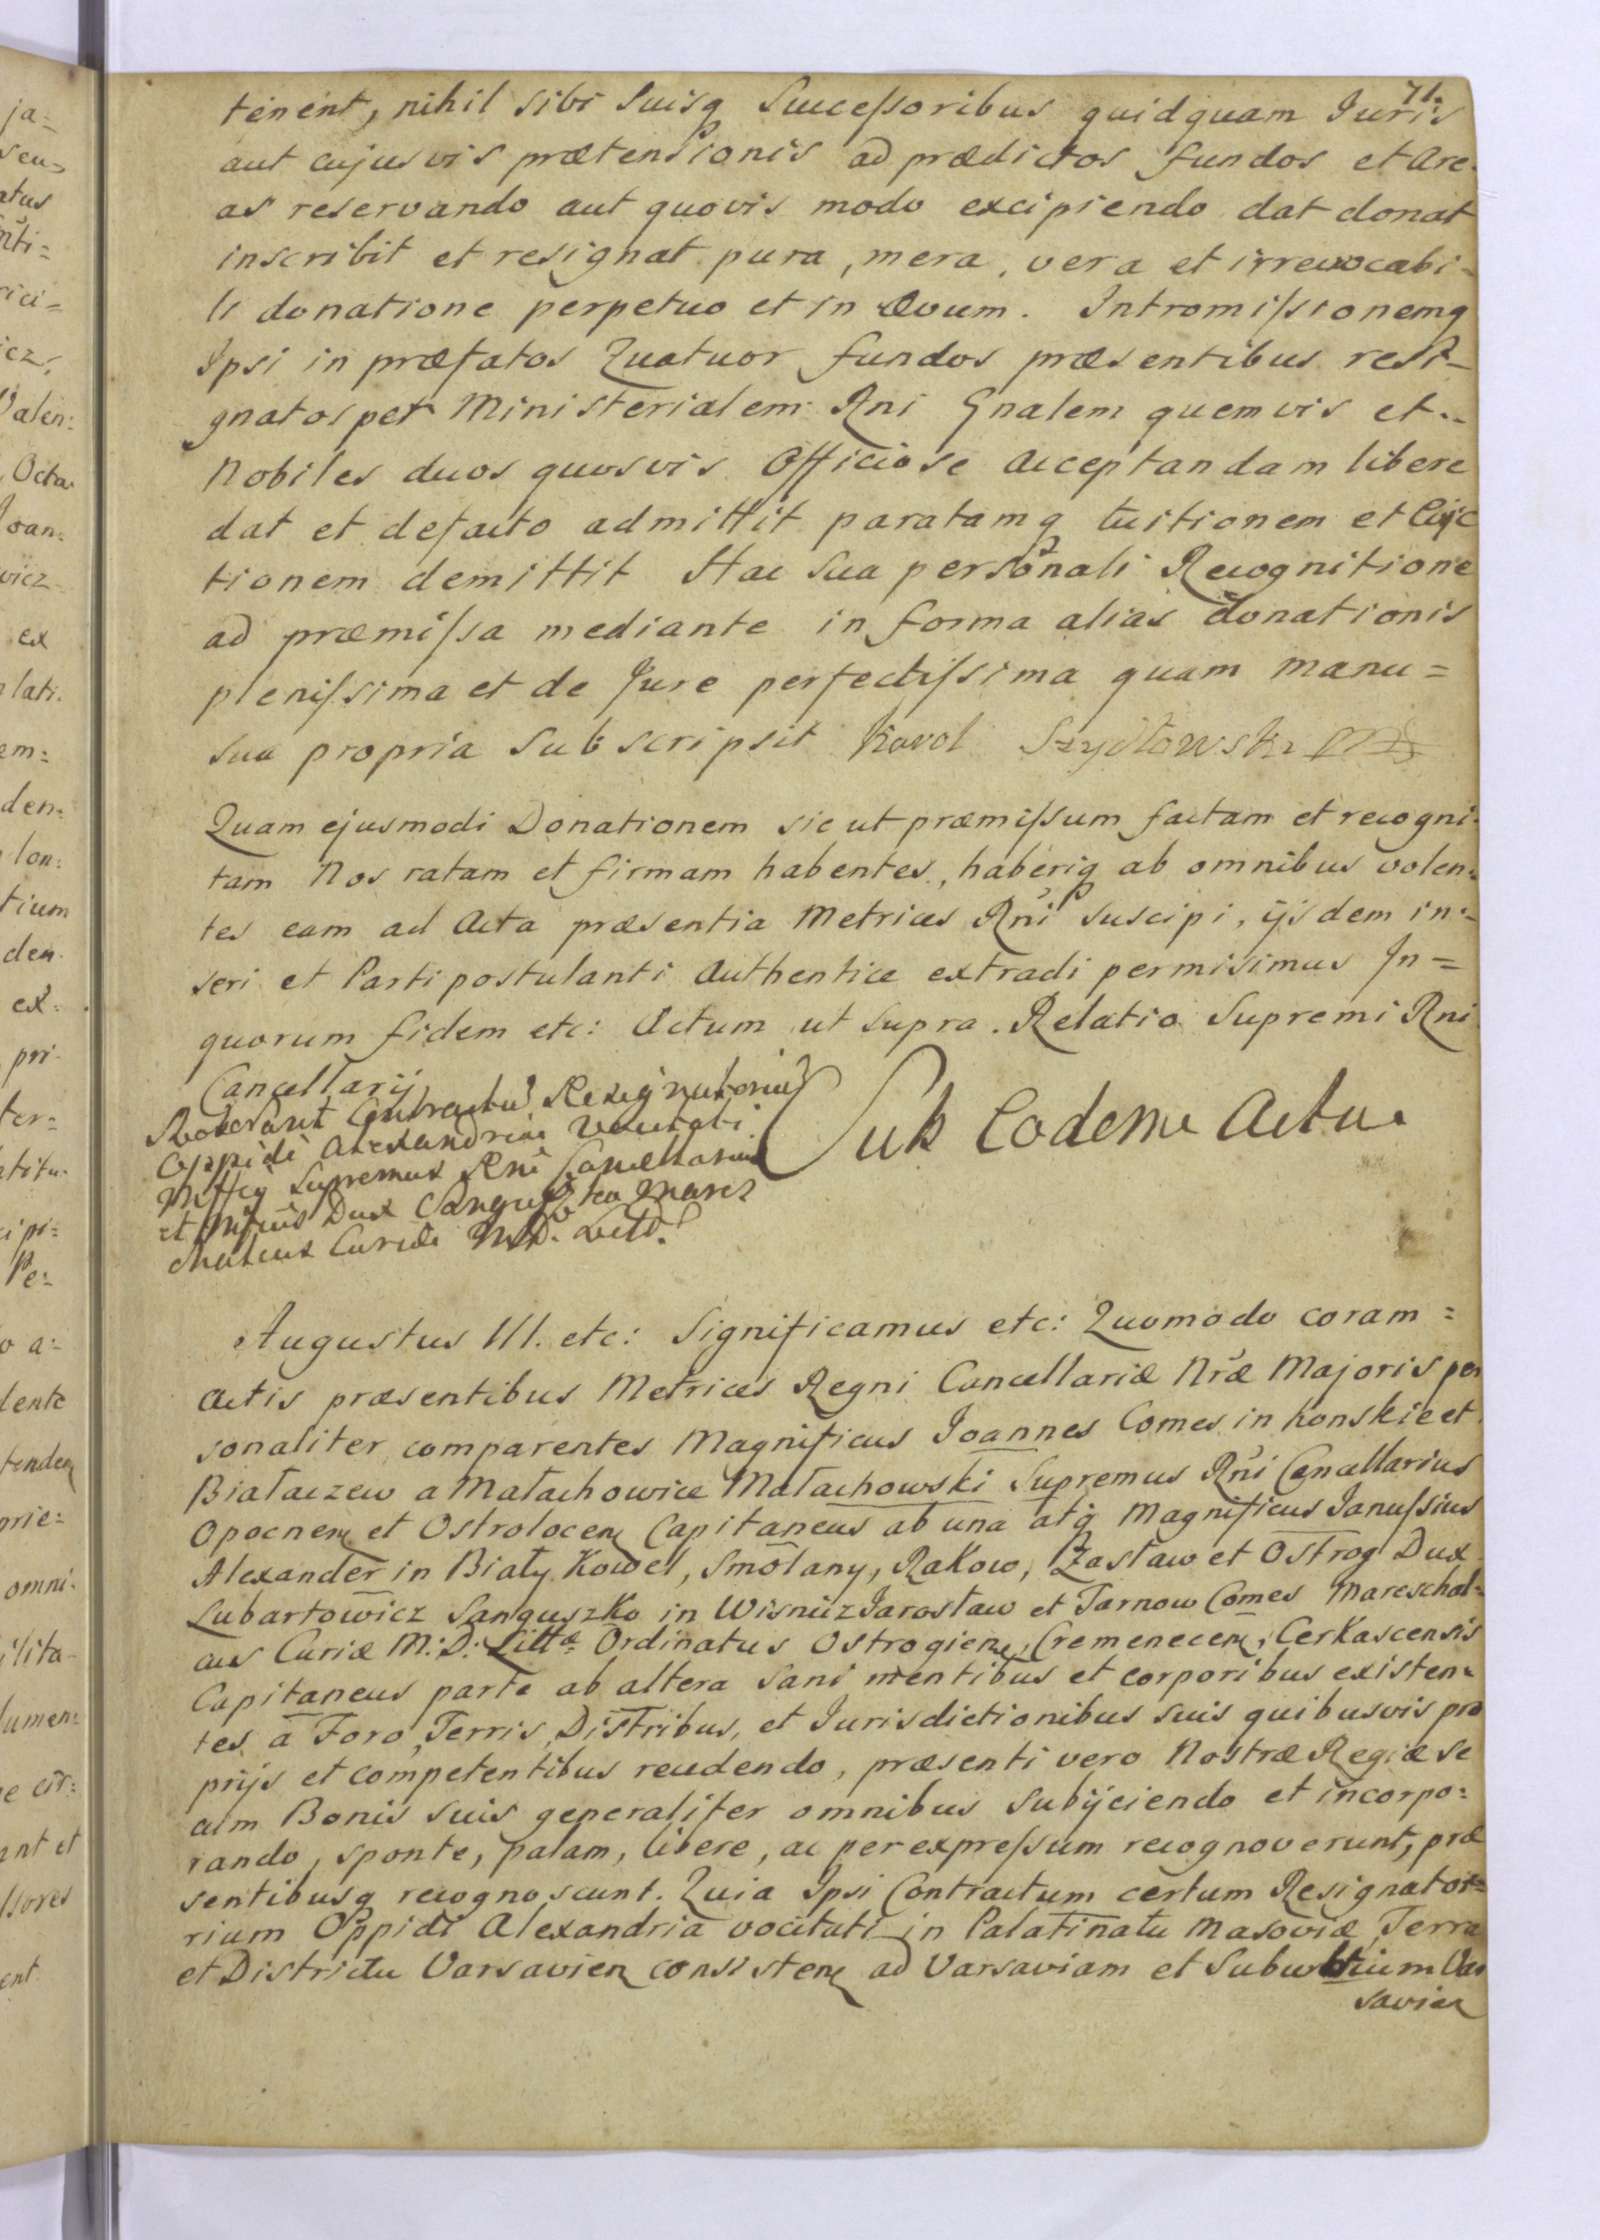 71.
tenent, nihil sibi suisq Successoribus quidquam Iuris
aut cujusvis prætensionis ad prædictos fundos et Are-
as reservando aut quovis modo excipiendo dat donat
inscribit et resignat pura, mera, vera et irrevocabi-
li donatione perpetuo et in Ævum. Intromissionemq
Ipsi in præfatos Quatuor fundos præsentibus resi-
gnatos per Ministerialem Rni Gnalem quemvis et
Nobiles duos quosvis Officiose acceptandam libere
dat et defacto admittit paratamq tuitionem et
tionem demittit Hac sua personali Recognitione
ad præmissa mediante in forma alias donationis
plenissima et de Jure perfectissima quam manu=
sua propria Subscripsit Karol Szydłowski
Quam ejusmodi Donationem sic ut præmissum factam et recogni-
tam Nos ratam et firmam habentes, haberiq ab omnibus volen=
tes eam ad Acta præsentia Metrices Rni suscipi, ijsdem in=
seri et Parti postulanti Authentice extradi permisimus In=
quorum fidem etc: Actum ut supra. Relatio Supremi Rni
Cancellarij
Roborant Contractus Resignatorius
Oppidi Alexandriae Vocitati
Mffcq Supremus Rni Cancellarius
et Mfcus Dux Sanguszko Mares
chalcus Curiæ M.D. Litt.
Sub Eodem Actu.
Augustus III. etc: Significamus etc: Quomodo coram=
Actis præsentibus Metrices Regni Cancellariæ Nræ Majoris per
sonaliter comparentes Magnificus Ioannes Comes in Konskie et
Białaczew a Małachowice Małachowski Supremus Rni Cancellarius
Opocnen et Ostrolocen Capitaneus ab una atq Magnificus Ianussius
Alexander in Biały Kowel, Smolany, Rakow, Zasław et Ostrog Dux
Lubartowicz Sanguszko in Wisnicz Jarosław et Tarnow Comes Mareschal=
cus Curiæ M: D: Littæ Ordinatus Ostrogien, Cremenecen, Cerkascensis
Capitaneus parte ab altera sani mentibus et corporibus existen=
tes a Foro, Terris, Distribus, et Iurisdictionibus suis quibusvis pro
prijs et competentibus recedendo, præsenti vero Nostræ Regiæ se
cum Bonis suis generaliter omnibus subijciendo et incorpo=
rando, sponte, palam, libere, ac per expressum recognoverunt, præ
sentibusq recognoscunt. Quia Ipsi Contractum certum Resignato=
rium Oppidi Alexandria vocitati in Palatinatu Masoviæ, Terra
et Districtu Varsavien consisten ad Varsaviam et Suburbium Var
savien